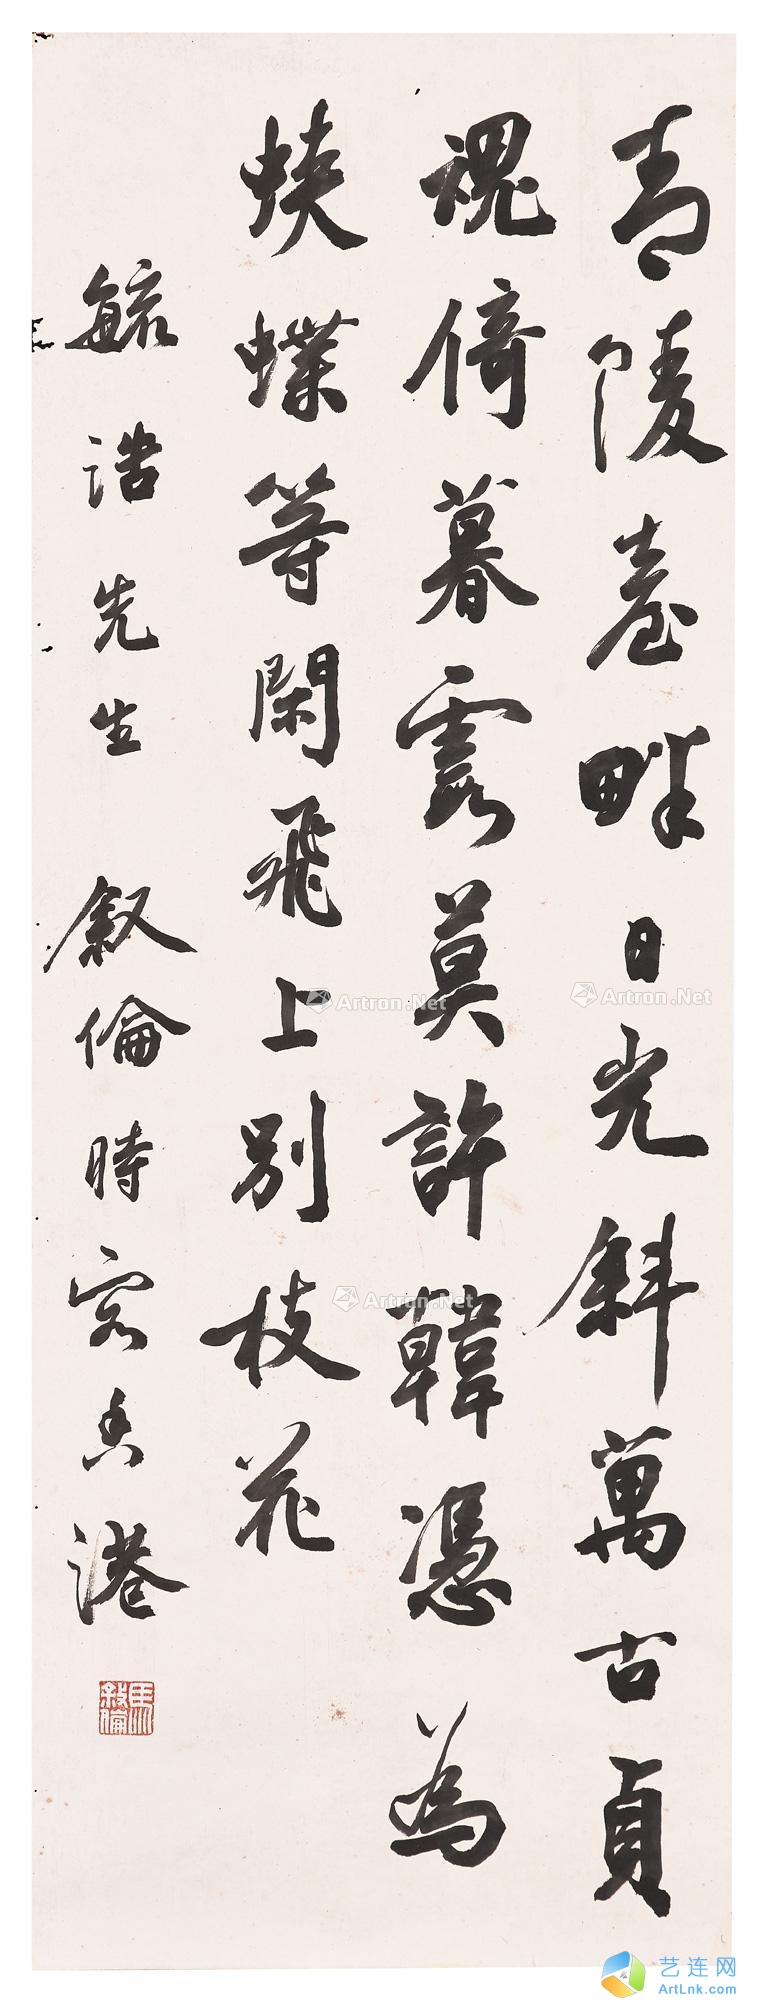 青陵臺畔日光斜萬古貞
魂倚暮霞莫許韓憑為
蛺蝶等閑飛上別枝花
毓浩先生 叙倫時客香港
馬叙倫
Artron.Net
Artron.Net
Artron.Net
艺连网
ArtLnk.com